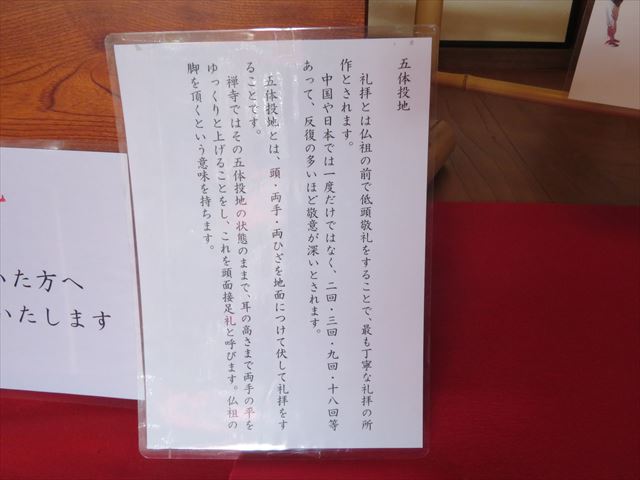 五体投地
礼拝とは仏祖の前で低頭敬礼をすることで、最も丁寧な礼拝の所
作とされます。
中国や日本では一度だけではなく、二回・三回・九回・十八回等
あって、反復の多いほど敬意が深いとされます。
五体投地とは、頭・両手・両ひざを地面につけて伏して礼拝をす
ることです。
禅寺ではその五体投地の状態のままで、耳の高さまで両手の平を
ゆっくりと上げることをし、これを頭面接足礼と呼びます。仏祖の
脚を頂くという意味を持ちます。
いた方へ
いたします